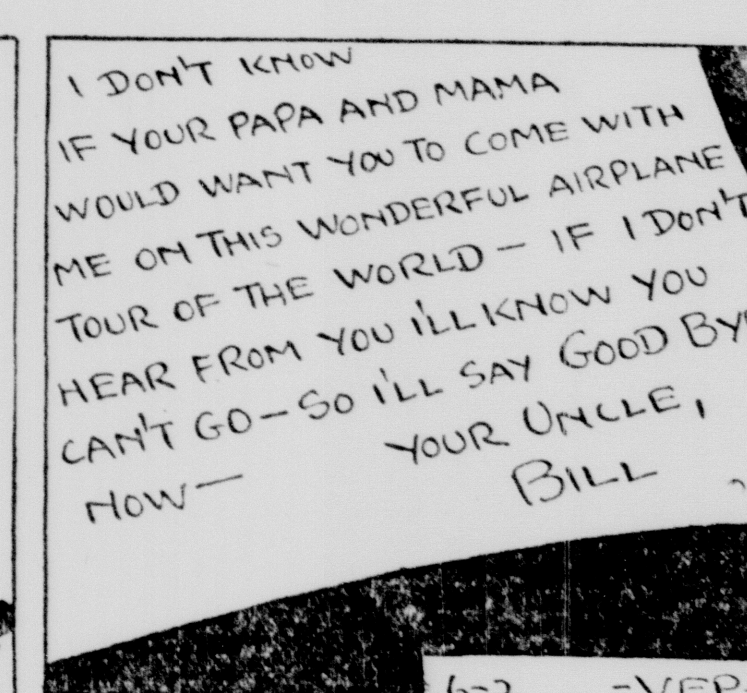 I DON'T KNOW
IF YOUR PAPA AND MAMA
WOULD WANT YOU TO COME WITH
ME ON THIS WONDERFUL AIRPLANE
TOUR OF THE WORLD — IF I DON'T
HEAR FROM YOU I'LL KNOW YOU
CAN'T GO — SO I'LL SAY GOOD BYE
NOW —
YOUR UNCLE,
BILL
6-2